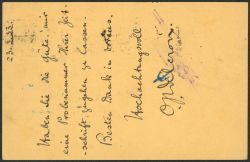 23.3.33.
Haben Sie die Güte, mir
eine Probenummer Ihrer Zeit-
schrift zugehen zu lassen.
Besten Dank im voraus.
Hochachtungsvoll